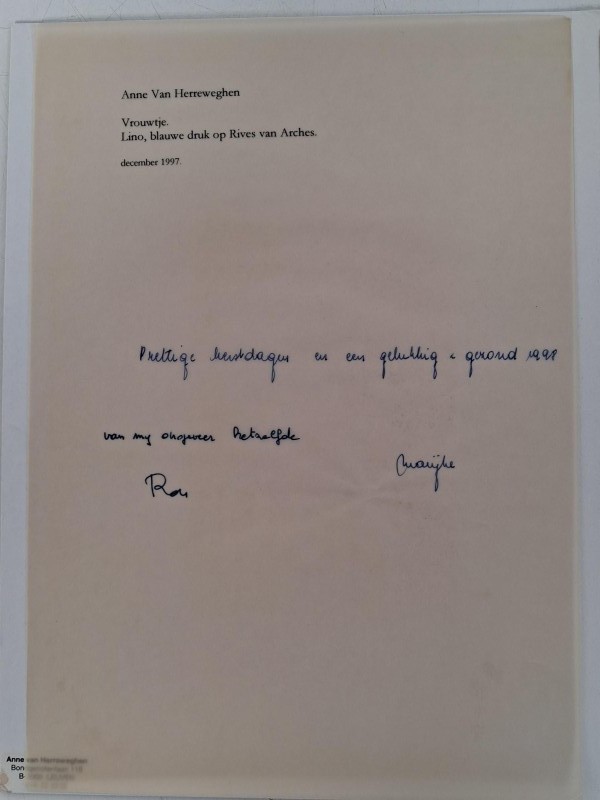 Anne Van Herreweghen
Vrouwtje.
Lino, blauwe druk op Rives van Arches.
december 1997.
Prettige kerstdagen en een gelukkig & gezond 1998
van mij ongeveer hetzelfde
Marijke
Ron
Anne van Herreweghen